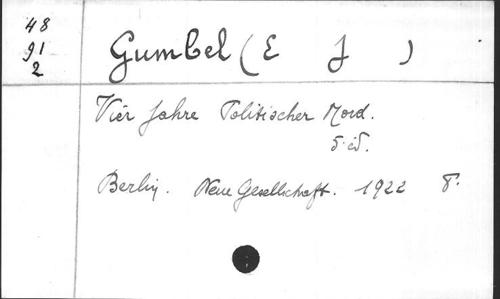 48
91
2
Gumbel (E J )
Vier Jahre Politischer Mord.
5. éd.
Berlin. Neue Gesellschaft. 1922 8°.